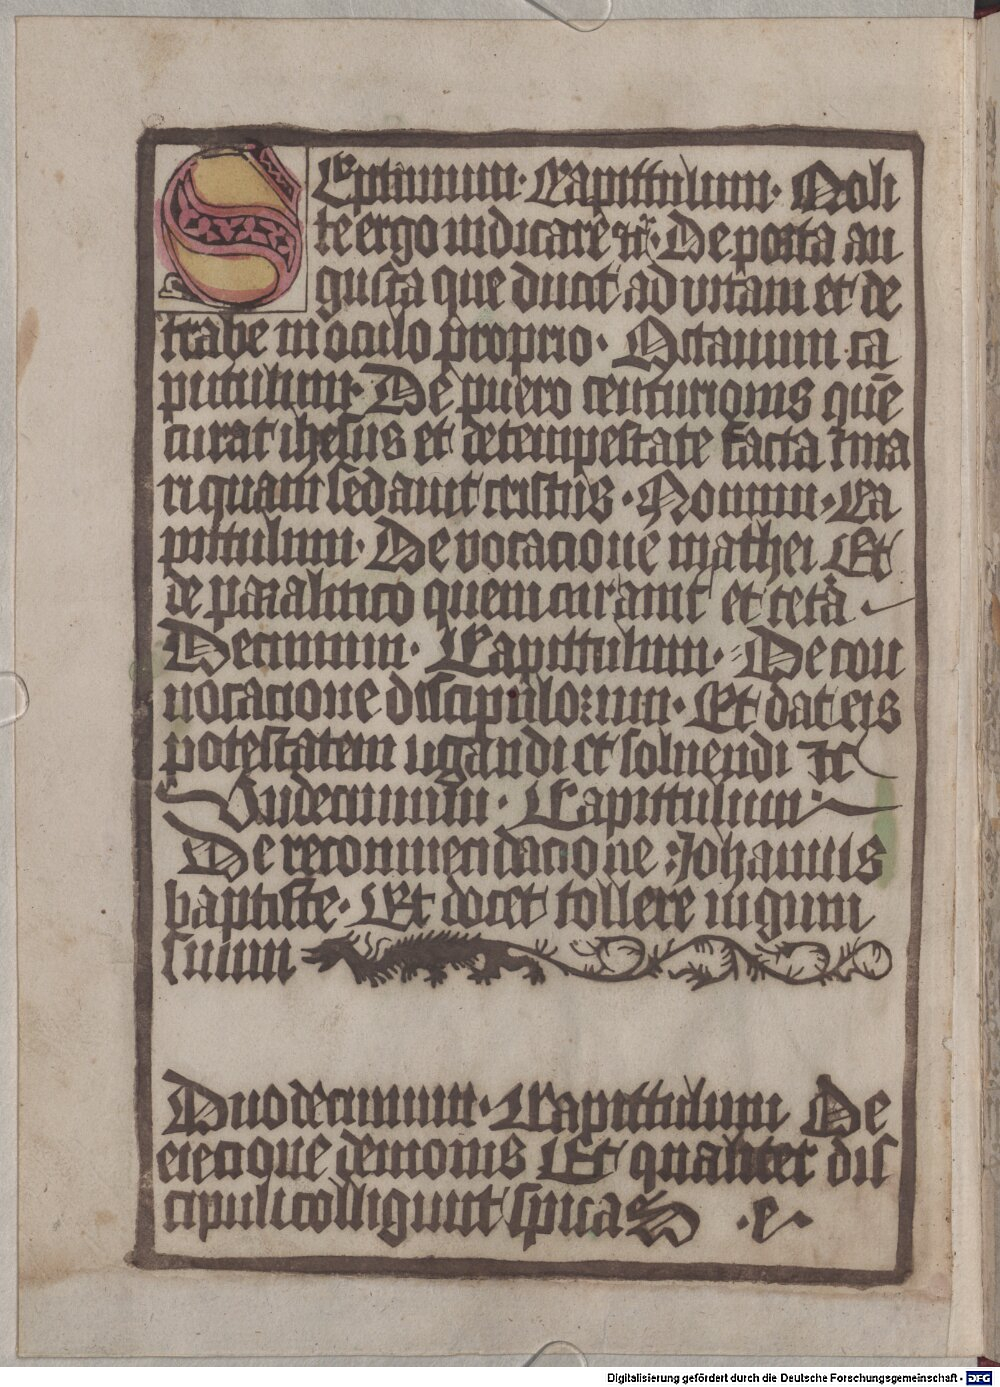 SEptimum· Capittulum· Noli
te ergo iudicare et̄c̄· De porta an
gusta que ducit ad vitam et de
trabe in oculo proprio· Octauum ca
pittulum· De puero centurionis quē
curat ihesus et de tempestate facta ī ma
ri quam sedauit cristus· Nonum· Ca
pittulum· De vocacione mathei Et
de paralitico quem curauit et cetā
Decimum· Capittulum· De con
uocacione discipulorum· Et dat eis
potestatem ligandi et soluendi ꝛc
Vndecimum· Capittulum·
De recommendacione Johannis
baptiste· Et docet tollere iugum
suum
Duodecimum· Capittulum De
eiectione demonis Et qualiter dis
cipuli colligunt spicas ·e·
Digitalisierung gefördert durch die Deutsche Forschungsgemeinschaft - DFG